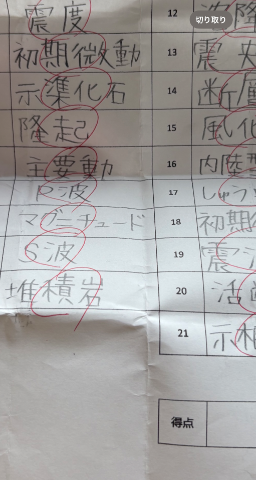 切り取り
震度
12
初期微動
13
震
示準化石
14
断層
隆起
15
風化
主要動
16
内陸型
P波
17
しゅう
マグニチュード
18
初期
S波
19
震
堆積岩
20
活
21
示相
得点